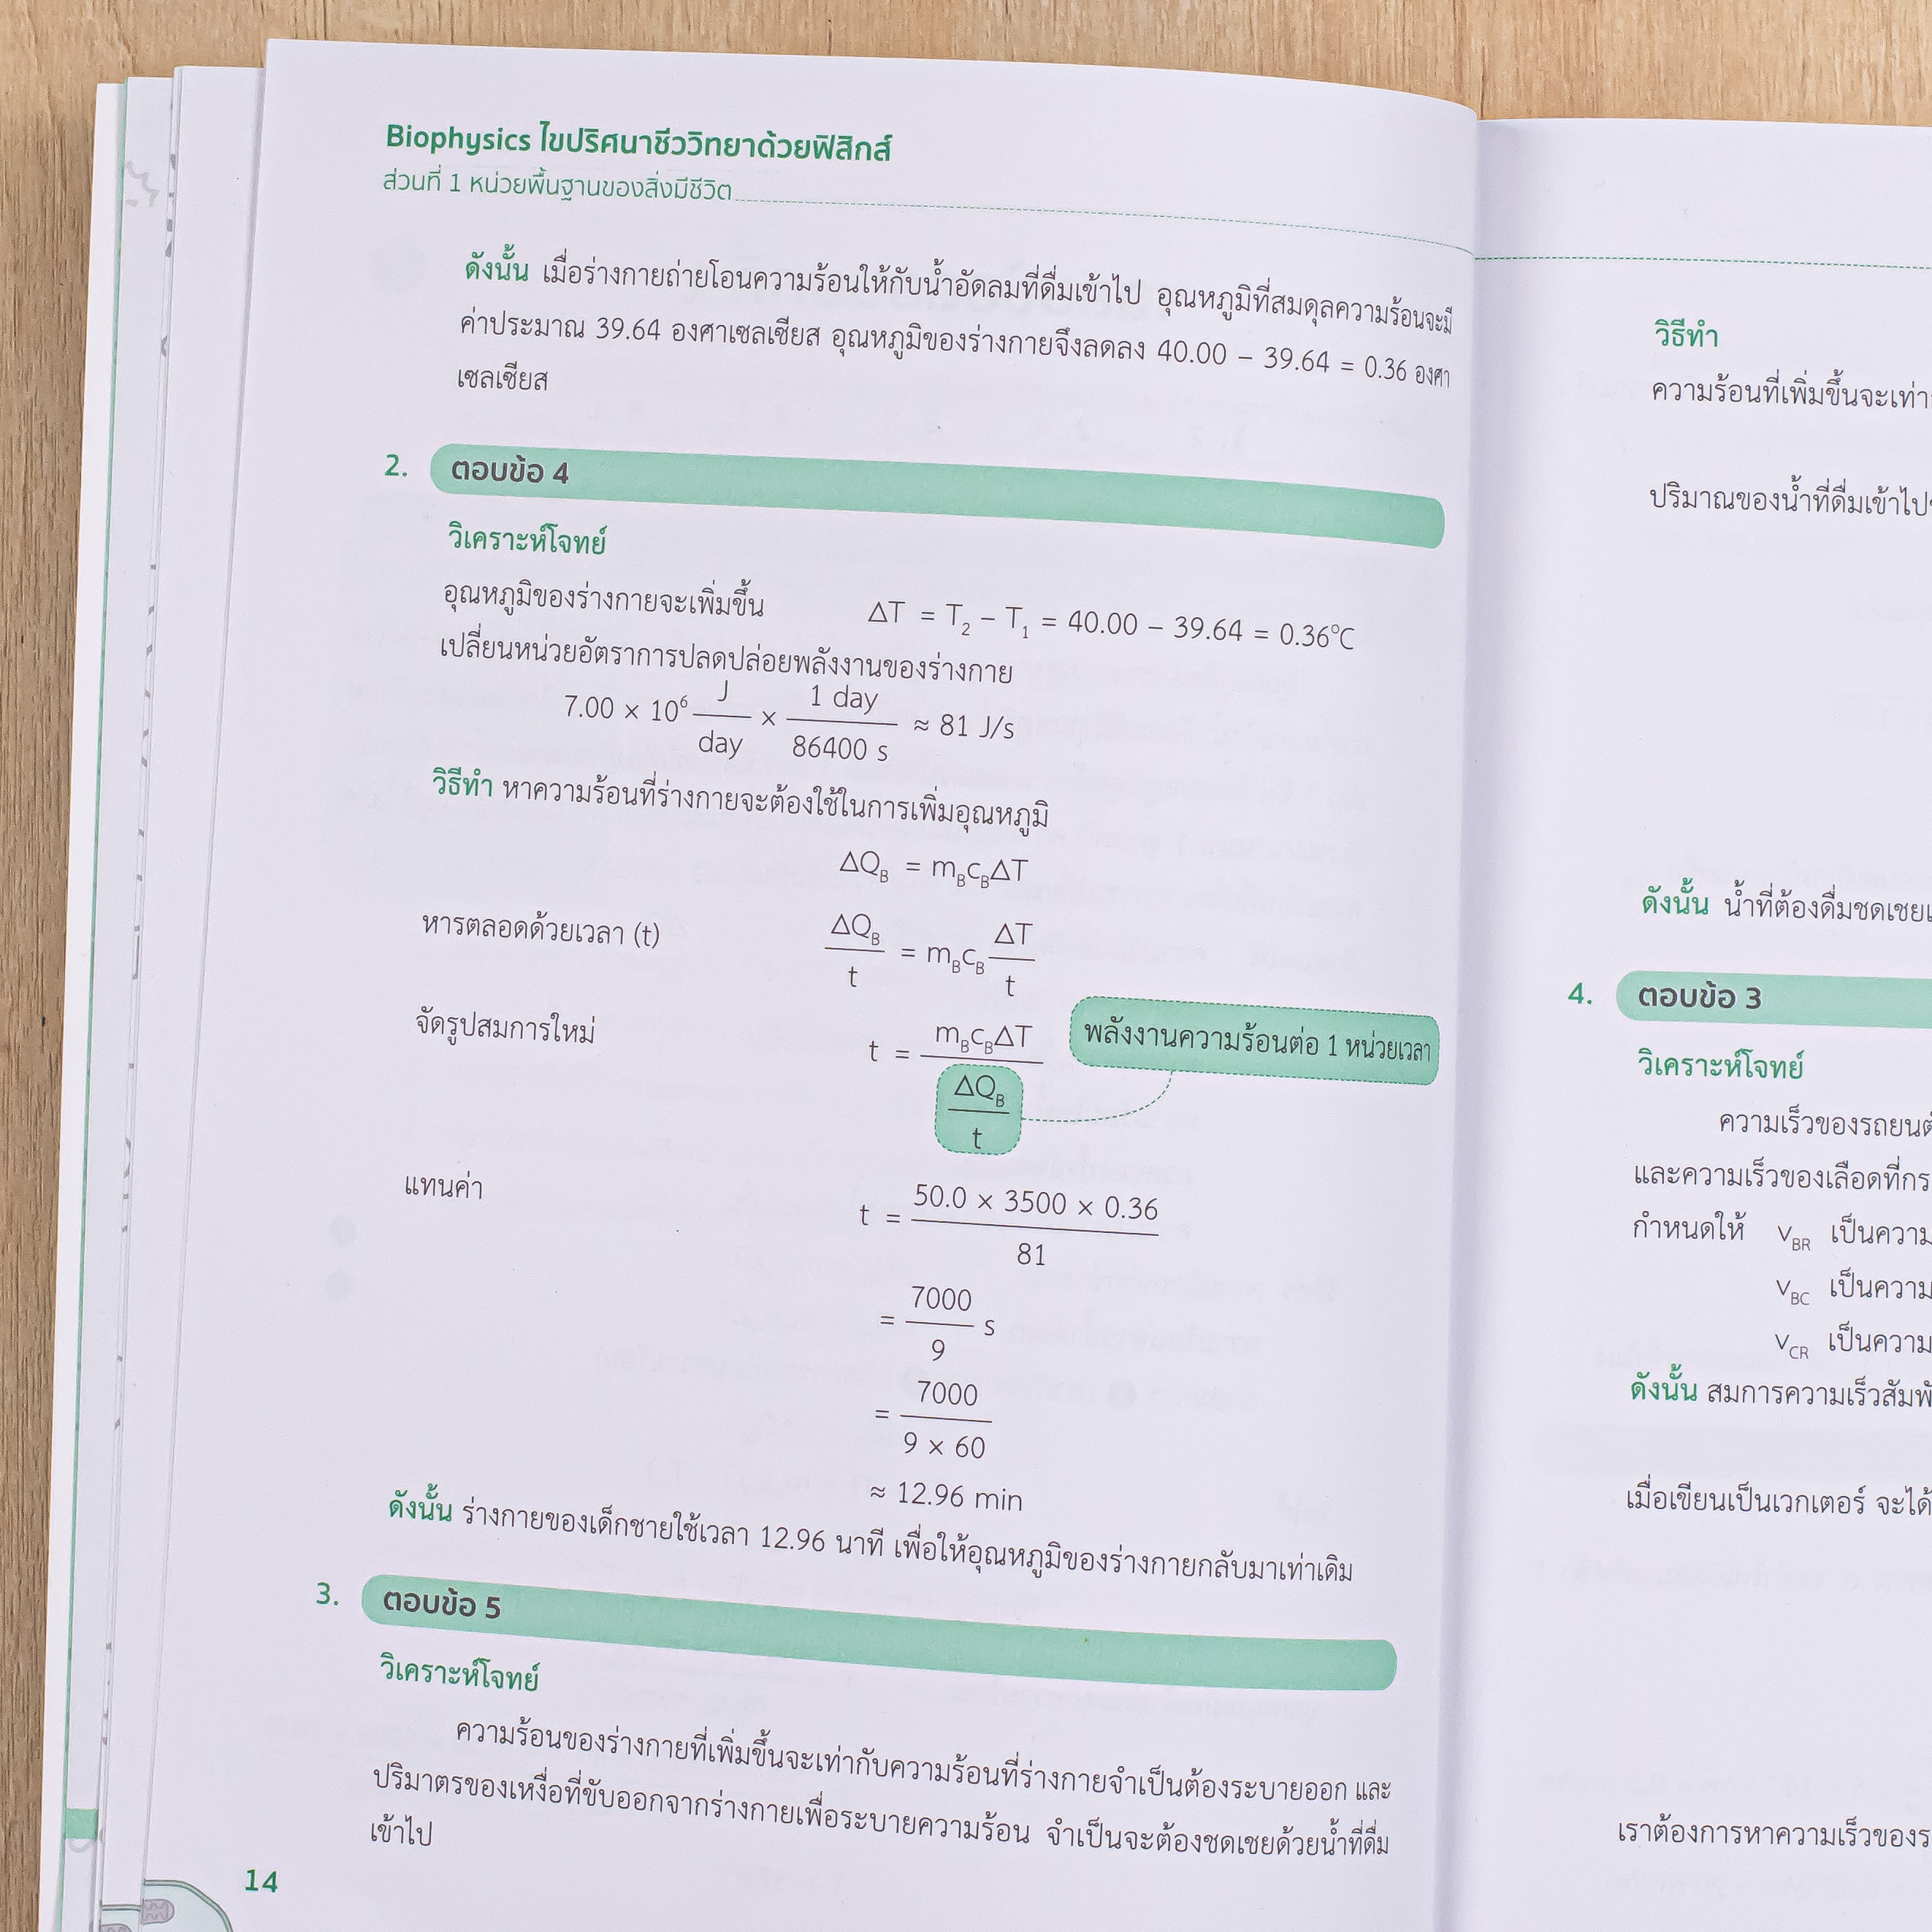 Biophysics ไขปริศนาชีววิทยาด้วยฟิสิกส์
ส่วนที่ 1 หน่วยพื้นฐานของสิ่งมีชีวิต
ดังนั้น เมื่อร่างกายถ่ายโอนความร้อนให้กับน้ำอัดลมที่ดื่มเข้าไป อุณหภูมิที่สมดุลความร้อนจะมี
ค่าประมาณ 39.64 องศาเซลเซียส อุณหภูมิของร่างกายจึงลดลง 40.00 – 39.64 = 0.36 องศา
เซลเซียส
2. ตอบข้อ 4
วิเคราะห์โจทย์
อุณหภูมิของร่างกายจะเพิ่มขึ้น ΔT = T₂ – T₁ = 40.00 – 39.64 = 0.36°C
เปลี่ยนหน่วยอัตราการปลดปล่อยพลังงานของร่างกาย
7.00 × 10⁶ J/day × 1 day/86400 s ≈ 81 J/s
วิธีทำ หาความร้อนที่ร่างกายจะต้องใช้ในการเพิ่มอุณหภูมิ
ΔQ_B = m_Bc_BΔT
หารตลอดด้วยเวลา (t) ΔQ_B/t = m_Bc_B ΔT/t
จัดรูปสมการใหม่ t = m_Bc_BΔT/(ΔQ_B/t) พลังงานความร้อนต่อ 1 หน่วยเวลา
แทนค่า t = 50.0 × 3500 × 0.36/81
= 7000/9 s
= 7000/9 × 60
≈ 12.96 min
ดังนั้น ร่างกายของเด็กชายใช้เวลา 12.96 นาที เพื่อให้อุณหภูมิของร่างกายกลับมาเท่าเดิม
3. ตอบข้อ 5
วิเคราะห์โจทย์
ความร้อนของร่างกายที่เพิ่มขึ้นจะเท่ากับความร้อนที่ร่างกายจำเป็นต้องระบายออก และ
ปริมาตรของเหงื่อที่ขับออกจากร่างกายเพื่อระบายความร้อน จำเป็นจะต้องชดเชยด้วยน้ำที่ดื่ม
เข้าไป
14
วิธีทำ
ความร้อนที่เพิ่มขึ้นจะเท่า
ปริมาณของน้ำที่ดื่มเข้าไป
ดังนั้น น้ำที่ต้องดื่มชดเชย
4. ตอบข้อ 3
วิเคราะห์โจทย์
ความเร็วของรถยนต์
และความเร็วของเลือดที่
กำหนดให้ v_BR เป็นความ
v_BC เป็นความ
v_CR เป็นความ
ดังนั้น สมการความเร็ว
เมื่อเขียนเป็นเวกเตอร์ จะได้
เราต้องการหาความเร็วของ